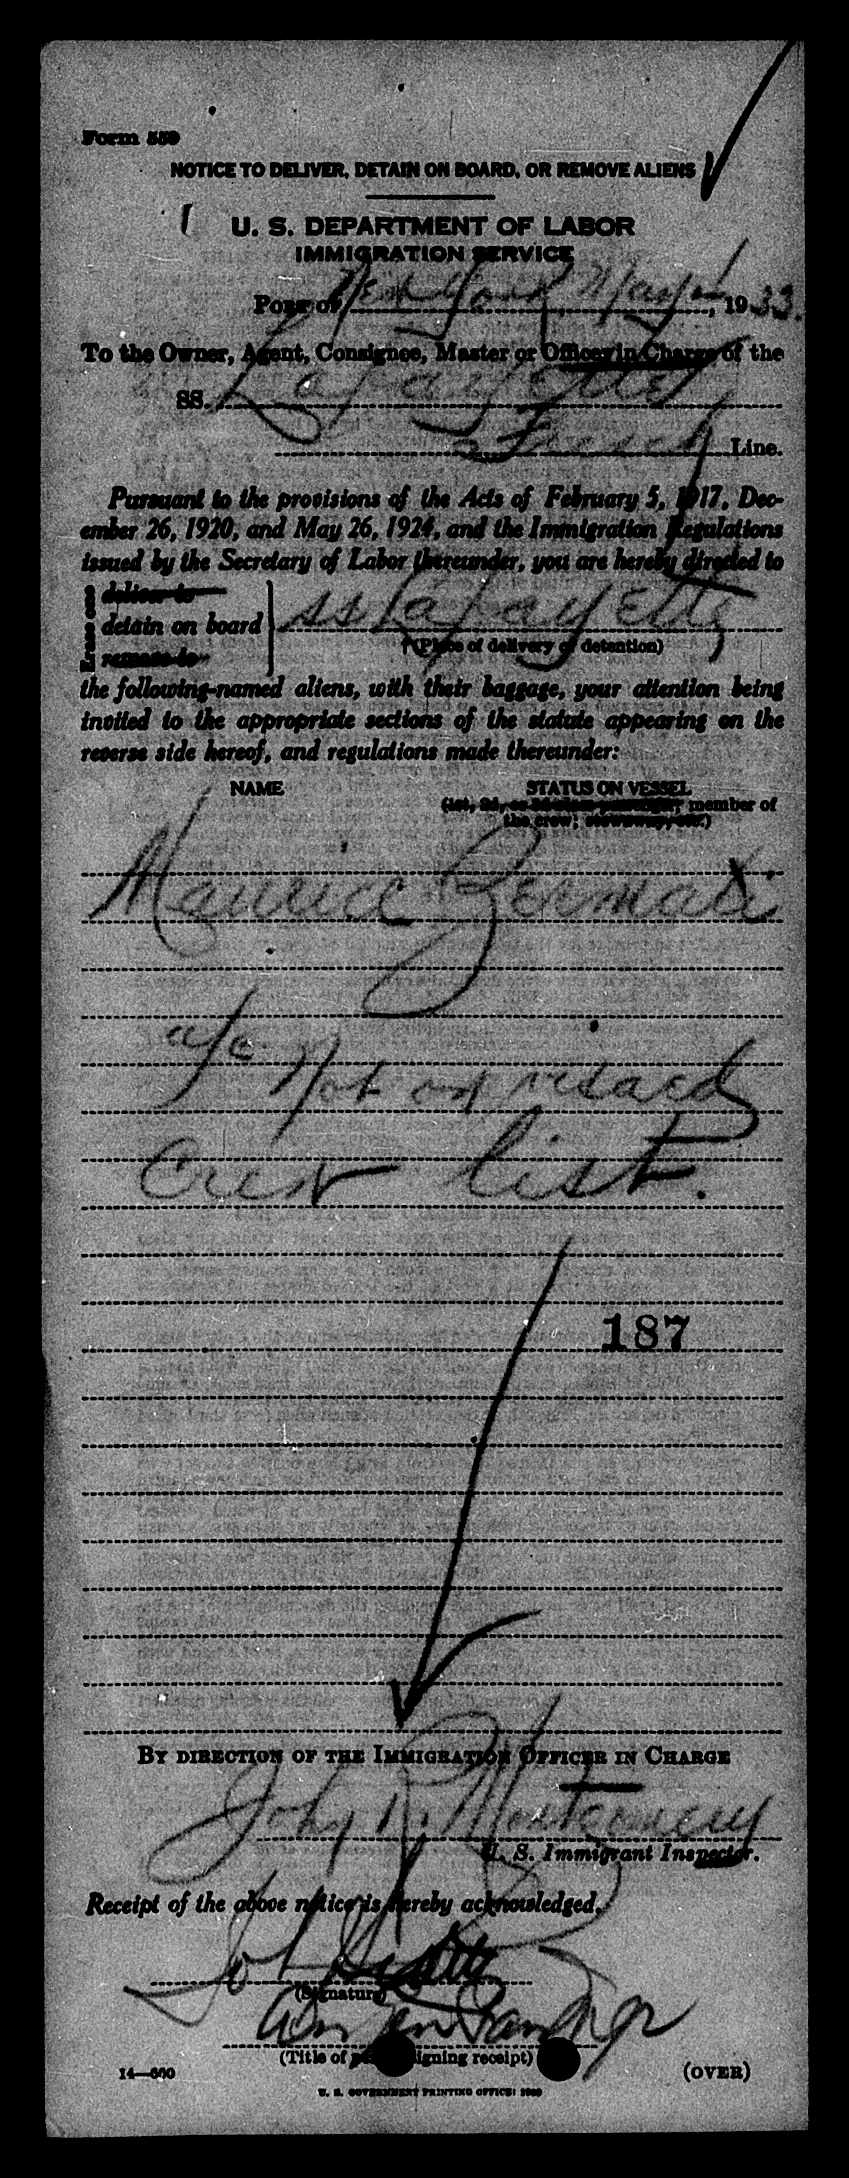 Form 559
NOTICE TO DELIVER, DETAIN ON BOARD, OR REMOVE ALIENS
U. S. DEPARTMENT OF LABOR
IMMIGRATION SERVICE
PORT OF New York, May 1, 1933.
To the Owner, Agent, Consignee, Master or Officer in Charge of the
SS. Lafayette
French Line.
Pursuant to the provisions of the Acts of February 5, 1917, Dec-
ember 26, 1920, and May 26, 1924, and the Immigration Regulations
issued by the Secretary of Labor thereunder, you are hereby directed to
Erase one
deliver to
detain on board
remove to
SS Lafayette
(Place of delivery or detention)
the following-named aliens, with their baggage, your attention being
invited to the appropriate sections of the statute appearing on the
reverse side hereof, and regulations made thereunder:
NAME STATUS ON VESSEL
member of
the crew;
Maurice Zermati
a/c Not on visaed
Crew list.
187
BY DIRECTION OF THE IMMIGRATION OFFICER IN CHARGE
John R. Montgomery
U. S. Immigrant Inspector.
Receipt of the above notice is hereby acknowledged.
(Signature)
(Title of signing receipt)
14—
(OVER)
U. S. GOVERNMENT PRINTING OFFICE: